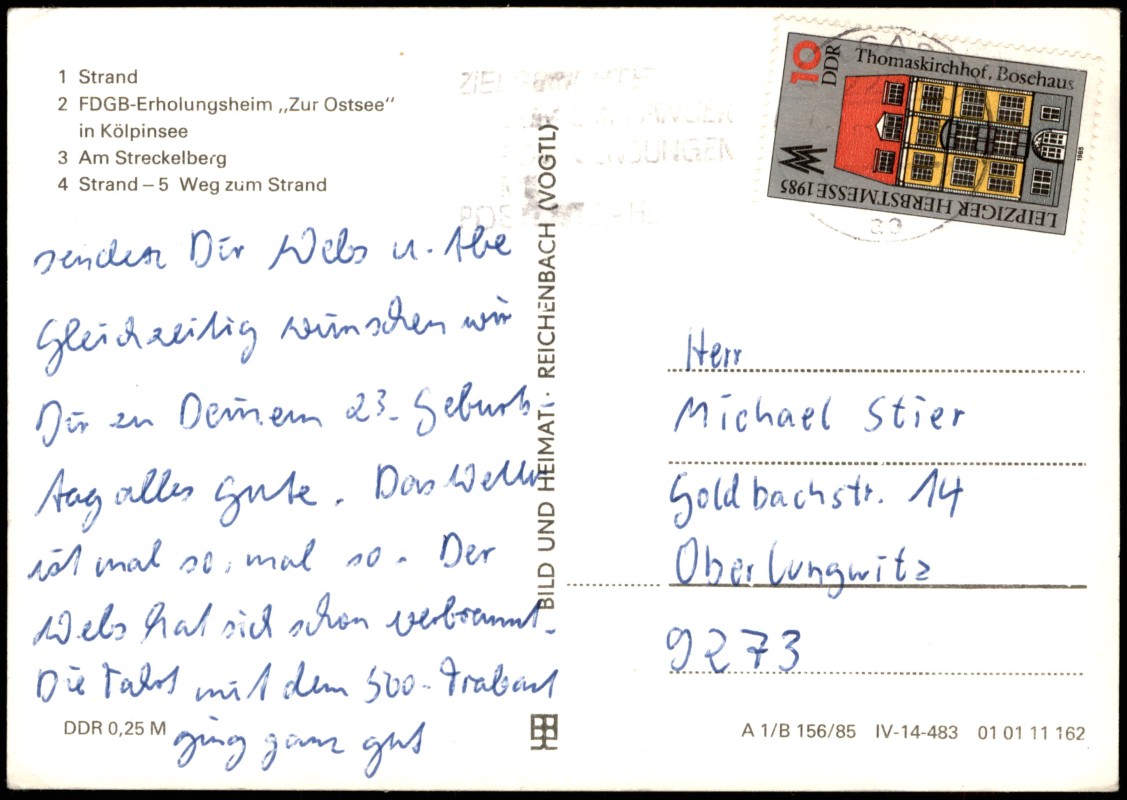 1 Strand
2 FDGB-Erholungsheim „Zur Ostsee“
in Kölpinsee
3 Am Streckelberg
4 Strand – 5 Weg zum Strand
senden Dir Webs u. Abe
Gleichzeitig wünschen wir
Dir zu Deinem 23. Geburts-
tag alles gute. Das Wetter
ist mal so, mal so. Der
Webs hat sich schon verbrannt.
Die Fahrt mit dem 500-Trabant
ging ganz gut
DDR 0,25 M
BILD UND HEIMAT · REICHENBACH (VOGTL)
10
DDR
Thomaskirchhof, Bosehaus
1985
LEIPZIGER HERBSTMESSE 1985
Herr
Michael Stier
Goldbachstr. 14
Oberlungwitz
9273
A 1/B 156/85 IV-14-483 01 01 11 162